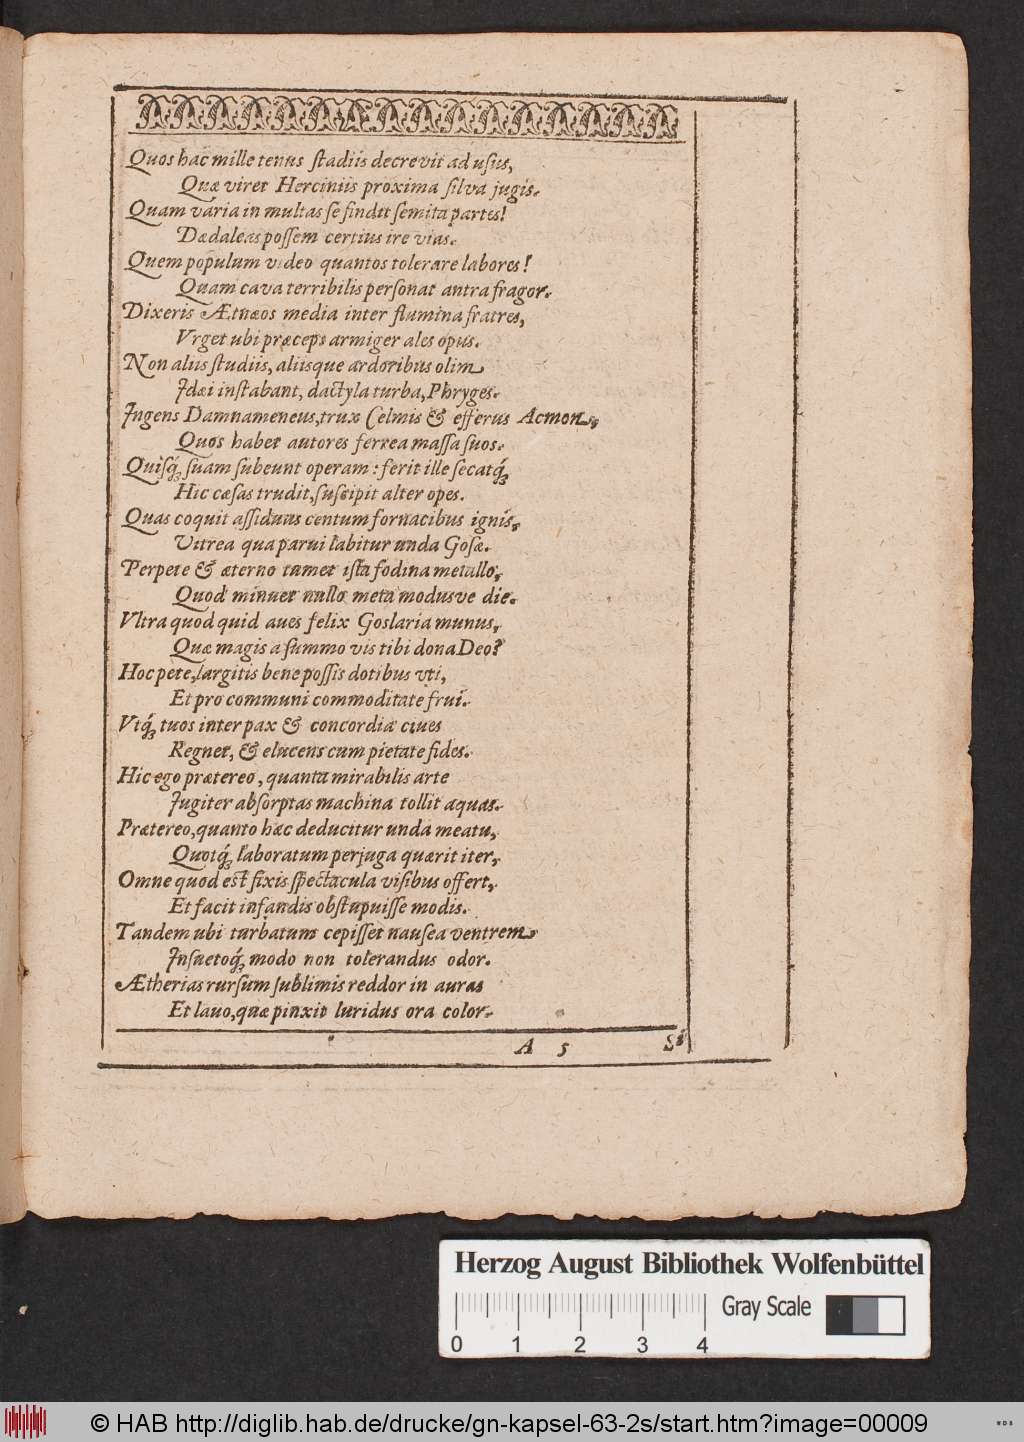 Quos hac mille tenus ſtadiis decrevit ad uſus,
Quæ viret Herciniis proxima ſilva jugis.
Quam varia in multas ſe findit ſemita partes!
Dædaleas poſſem certius ire vias.
Quem populum video quantos tolerare labores!
Quam cava terribilis perſonat antra fragor.
Dixeris Ætnæos media inter flumina fratres,
Vrget ubi præceps armiger ales opus.
Non aliis ſtudiis, aliisque ardoribus olim
Idæi inſtabant, dactyla turba, Phryges.
Ingens Damnameneus, trux Celmis & efferus Acmon,
Quos habet autores ferrea maſſa ſuos.
Quiſq́; ſuam ſubeunt operam: ferit ille ſecatq́;
Hic cæſas trudit, ſuſcipit alter opes.
Quas coquit aſſiduus centum fornacibus ignis,
Vitrea qua parui labitur unda Goſæ.
Perpete & æterno tumet iſta fodina metallo,
Quod minuet nullo meta modusve die.
Vltra quod quid aues felix Goslaria munus,
Quæ magis a ſummo vis tibi dona Deo?
Hoc pete, largitis bene poſſis dotibus vti,
Et pro communi commoditate frui.
Vtq́; tuos inter pax & concordia ciues
Regnet, & elucens cum pietate fides.
Hic ego prætereo, quanta mirabilis arte
Iugiter abſorptas machina tollit aquas.
Prætereo, quanto hæc deducitur unda meatu,
Quotq́; laboratum per juga quærit iter,
Omne quod eſt fixis ſpectacula viſibus offert,
Et facit infandis obſtupuiſſe modis.
Tandem ubi turbatum cepiſſet nauſea ventrem
Inſuetoq́; modo non tolerandus odor.
Ætherias rurſum ſublimis reddor in auras
Et lauo, quæ pinxit luridus ora color.
A 5 Si
Herzog August Bibliothek Wolfenbüttel
Gray Scale
0 1 2 3 4
© HAB http://diglib.hab.de/drucke/gn-kapsel-63-2s/start.htm?image=00009
WDB